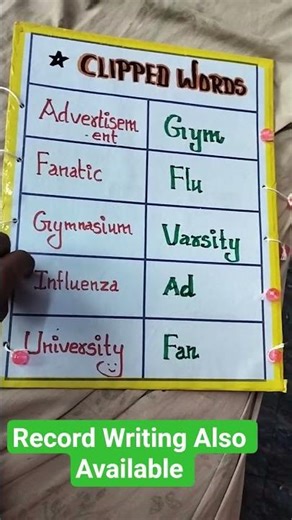 ★ CLIPPED WORDS
Advertisem Gym
-ent
Fanatic Flu
Gymnasium Varsity
Influenza Ad
University Fan
Record Writing Also
Available